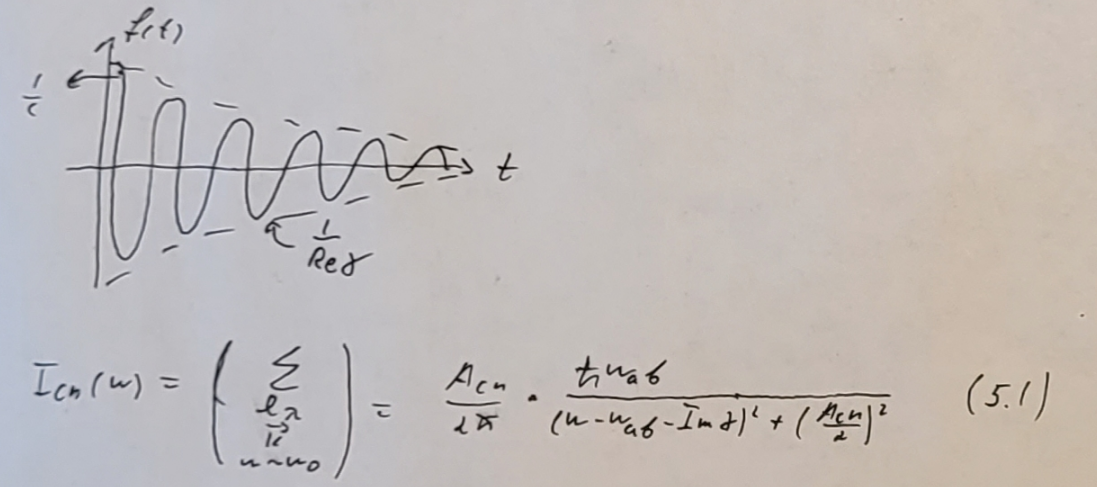 f(t)
1/c
t
1/Reγ
I_сп(ω) = ( ∑ e_λ k⃗ ω~ω₀ ) = A_сп/2π · ħω_ab/((ω-ω_ab-Imγ)² + (A_сп/2)²) (5.1)